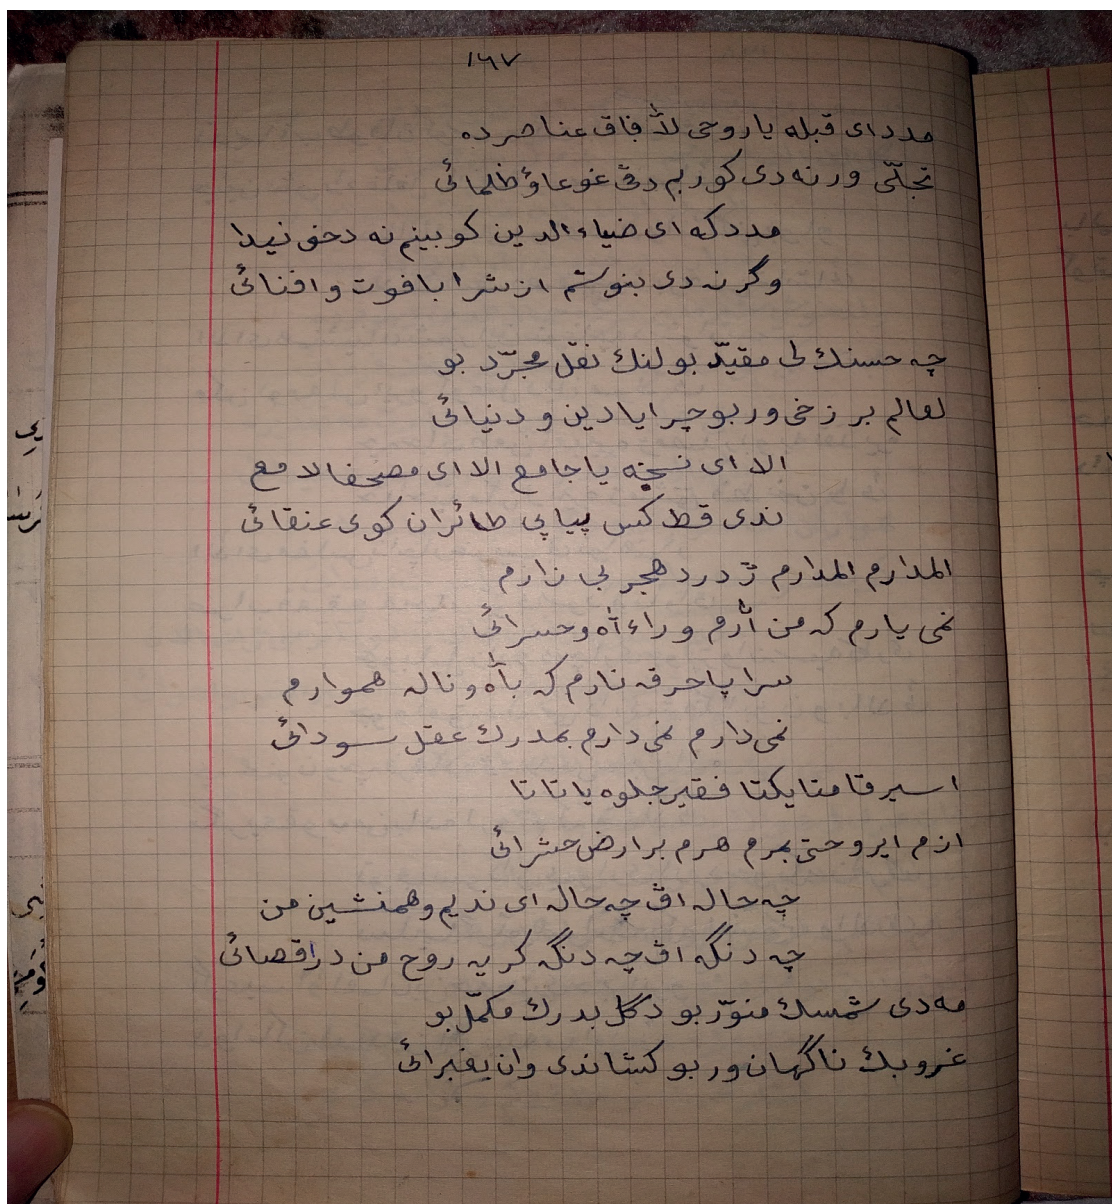 ١٦٧
مدد ای قبله یا روحی لآفاق عناصر ده
تجلّی ور نه دی کور بم دڤی غوغاؤ ظلمائی
مدد که ای ضیاء الدین کو بینم نه دحق نیدا
وگر نه دی بنوشم از شرابا فوت و افنائی
چه حسنك لی مقیّد بو لنك نقل مجرّد بو
لعالم برزخی ور بو چرایا دین و دنیائی
الا ای نسخه یا جامع الا ای مصحفا لامع
ندی قط کس پیاپی طائران کوی عنقائی
المدارم المدارم ژ درد هجر بی زارم
نمی یارم که من آرم وراء آه وحسرائی
سراپا حرقه نارم که بآه و ناله هموارم
نمی دارم نمی دارم بمدرك عقل سودائی
اسیر قامتا یکتا فقیر جلوه یا تاتا
ازم ایرو حتی بمرم هرم بر ارض حشرائی
چه حاله اڤ چه حاله ای ندیم وهمنشین من
چه دنگه اڤ چه دنگه کر یه روح من در اقصائی
مه دی شمسك منوّر بو دگل بدرك مکمّل بو
غروبك ناگهان ور بو کشاندی وان بغبرائی